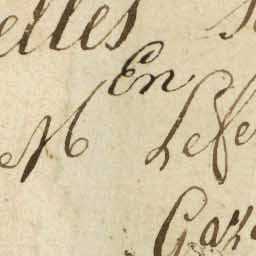 elles
En
M Lefe
Gaz